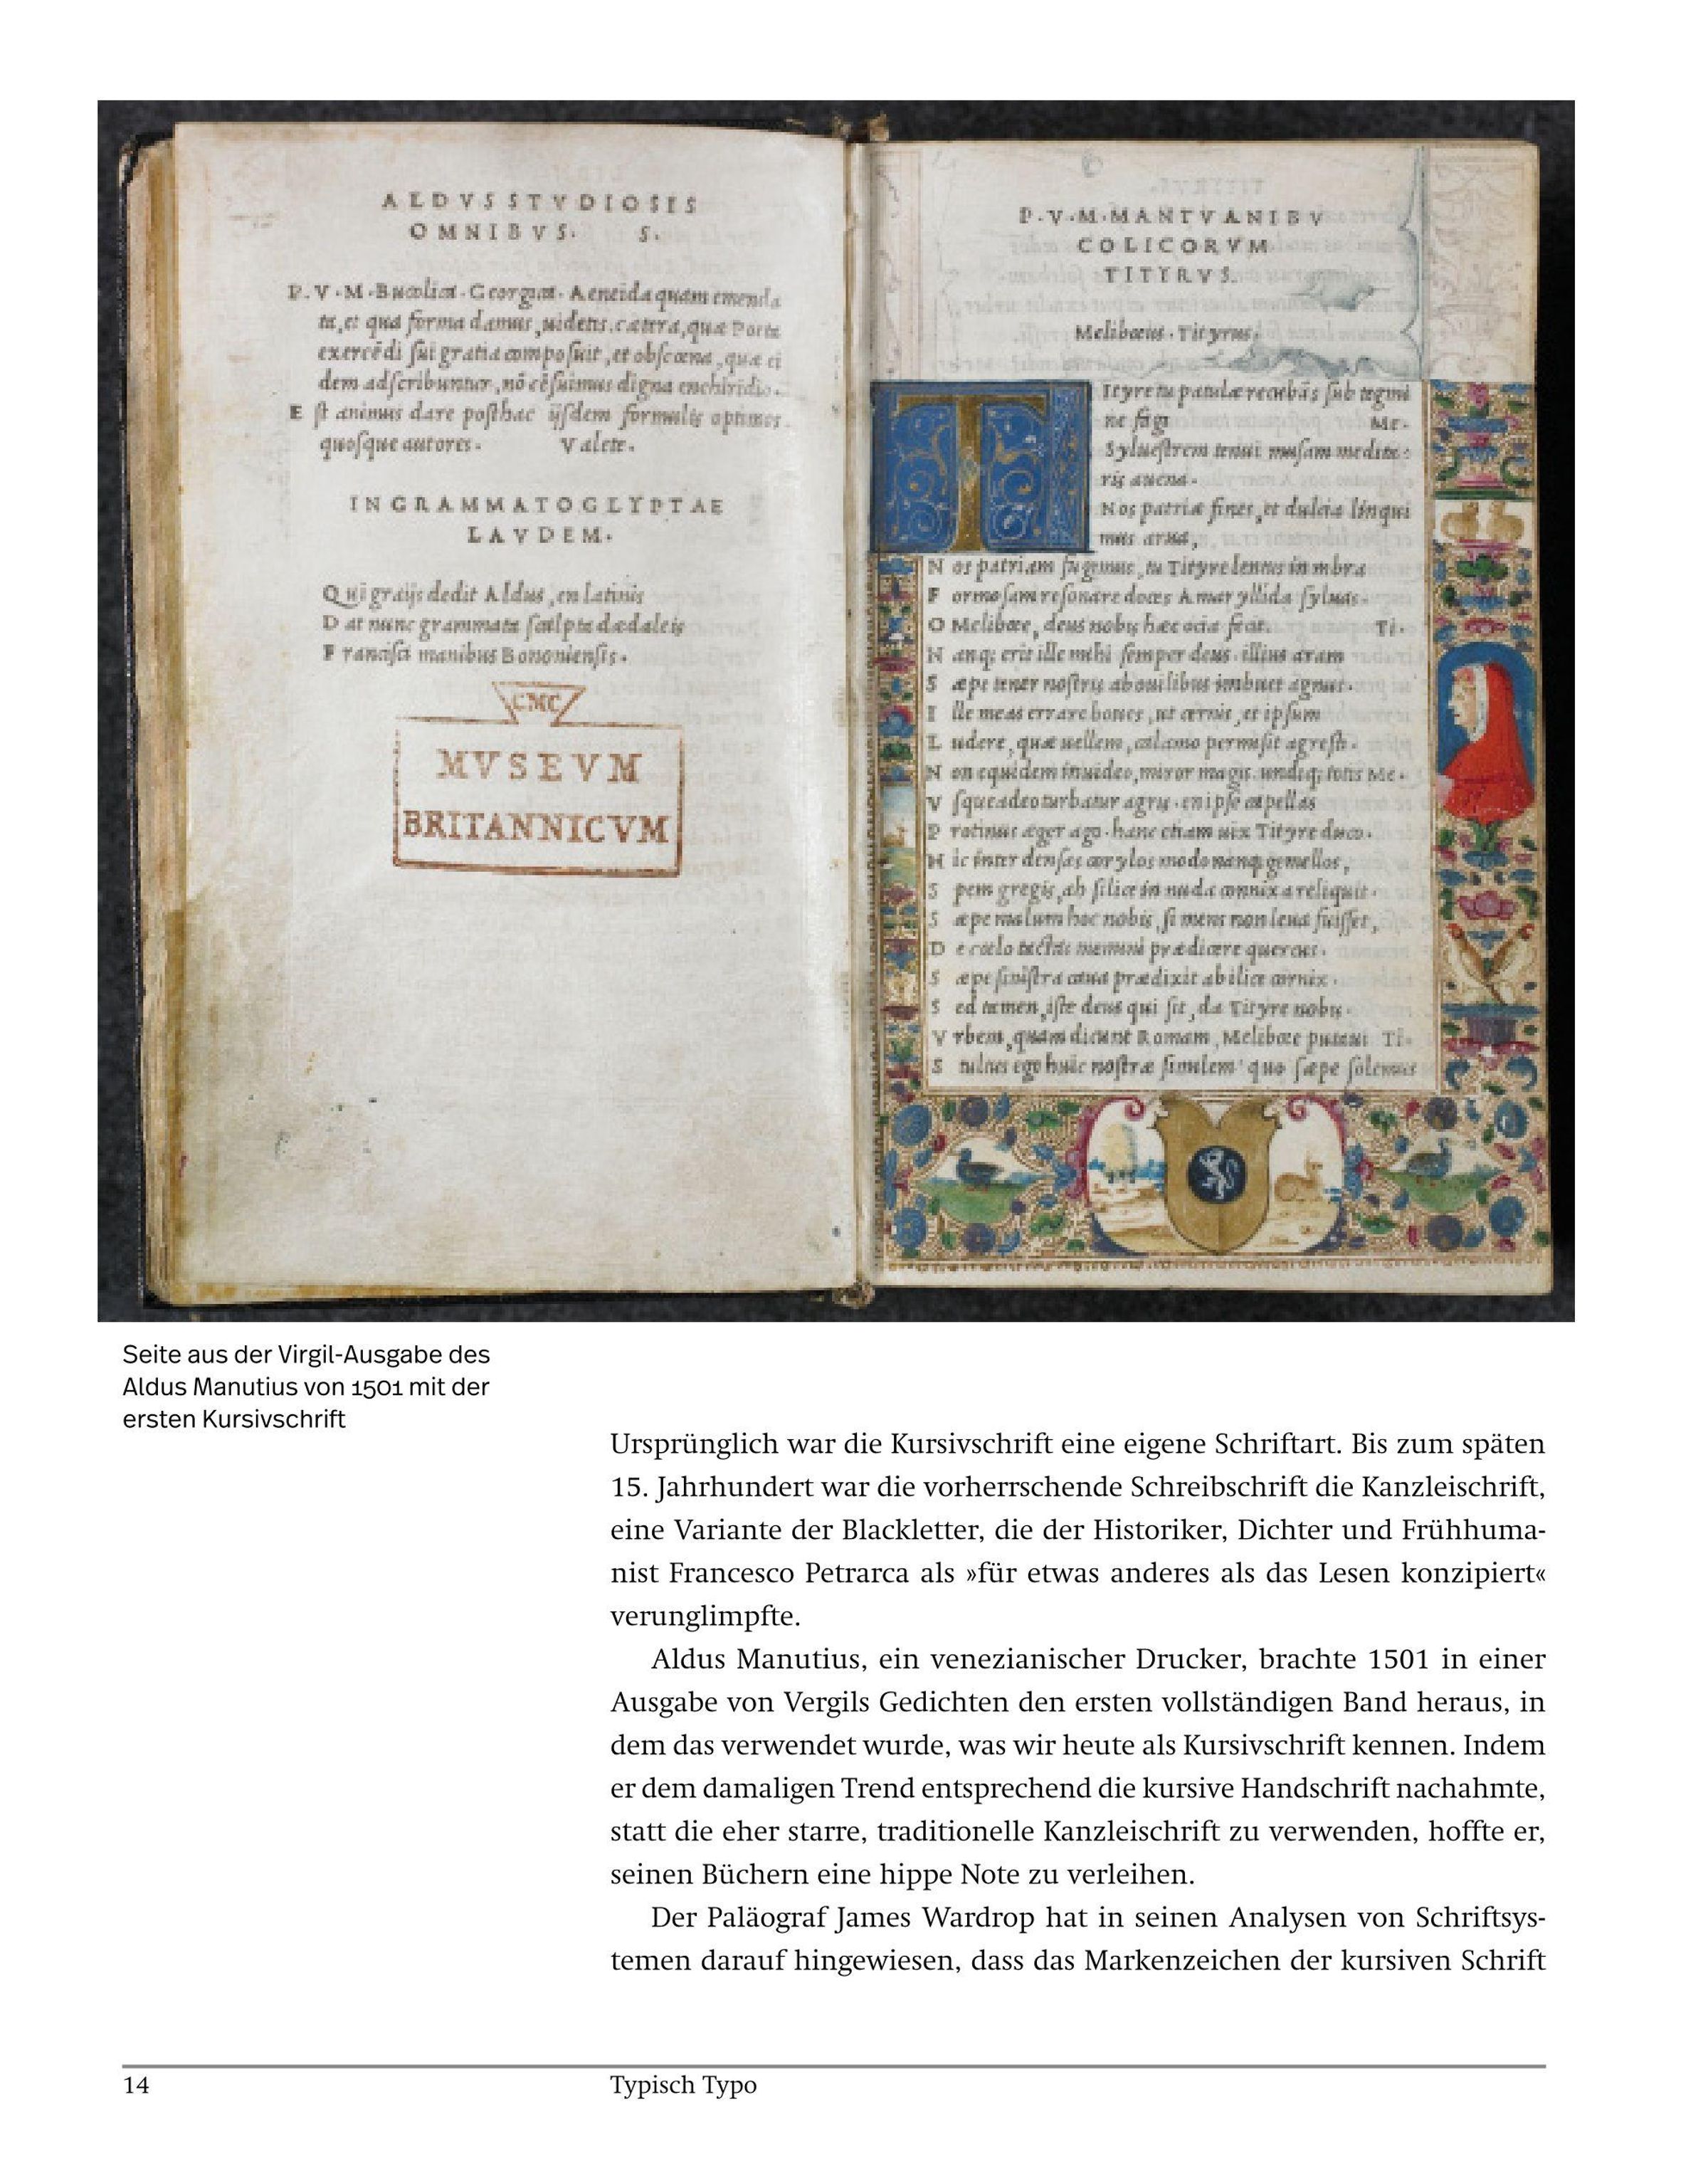 ALDVS STVDIOSIS
OMNIBVS. S.
P. V. M. Bucolica. Georgica. Aeneida quam emenda
ta, et qua forma damus, uidetis. cætera, quæ Poeta
exercẽdi sui gratia composuit, et obscœna, quæ ei
dem adscribuntur, nõ cẽsuimus digna enchiridio.
E st animus dare posthac ijsdem formulis optimos
quosque autores. Valete.
IN GRAMMATOGLYPTAE
LAVDEM.
Qui graijs dedit Aldus, en latinis
D at nunc grammata scalpta dædaleis
F rancisci manibus Bononiensis.
CMC
MVSEVM
BRITANNICVM
P. V. M. MANTVANI BV
COLICORVM
TITYRVS.
Melibœus. Tityrus.
T Ityre tu patulæ recubãs sub tegmi
ne fagi Me.
Syluestrem tenui musam medita-
ris auena.
Nos patriæ fines, et dulcia linqui
mus arua,
N os patriam fugimus, tu Tityre lentus in vmbra
F ormosam resonare doces Amaryllida syluas.
O Melibœe, deus nobis hæc ocia fecit. Ti.
N anq; erit ille mihi semper deus. illius aram
S æpe tener nostris ab ouilibus imbuet agnus.
I lle meas errare boues, ut cernis, et ipsum
L udere, quæ uellem, calamo permisit agresti.
N on equidem inuideo, miror magis. undiq; totis Me.
V sque adeo turbatur agris. en ipse capellas
P rotinus æger ago. hanc etiam uix Tityre duco.
H ic inter densas corylos modo nanq; gemellos,
S pem gregis, ah silice in nuda connixa reliquit.
S æpe malum hoc nobis, si mens non leua fuisset,
D e cœlo tactas memini prædicere quercus.
S æpe sinistra caua prædixit ab ilice cornix.
S ed tamen, iste deus qui sit, da Tityre nobis.
V rbem, quam dicunt Romam, Melibœe putaui Ti.
S tultus ego huic nostræ similem, quo sæpe solemus
Seite aus der Virgil-Ausgabe des
Aldus Manutius von 1501 mit der
ersten Kursivschrift
Ursprünglich war die Kursivschrift eine eigene Schriftart. Bis zum späten
15. Jahrhundert war die vorherrschende Schreibschrift die Kanzleischrift,
eine Variante der Blackletter, die der Historiker, Dichter und Frühhuma-
nist Francesco Petrarca als »für etwas anderes als das Lesen konzipiert«
verunglimpfte.
Aldus Manutius, ein venezianischer Drucker, brachte 1501 in einer
Ausgabe von Vergils Gedichten den ersten vollständigen Band heraus, in
dem das verwendet wurde, was wir heute als Kursivschrift kennen. Indem
er dem damaligen Trend entsprechend die kursive Handschrift nachahmte,
statt die eher starre, traditionelle Kanzleischrift zu verwenden, hoffte er,
seinen Büchern eine hippe Note zu verleihen.
Der Paläograf James Wardrop hat in seinen Analysen von Schriftsys-
temen darauf hingewiesen, dass das Markenzeichen der kursiven Schrift
14 Typisch Typo